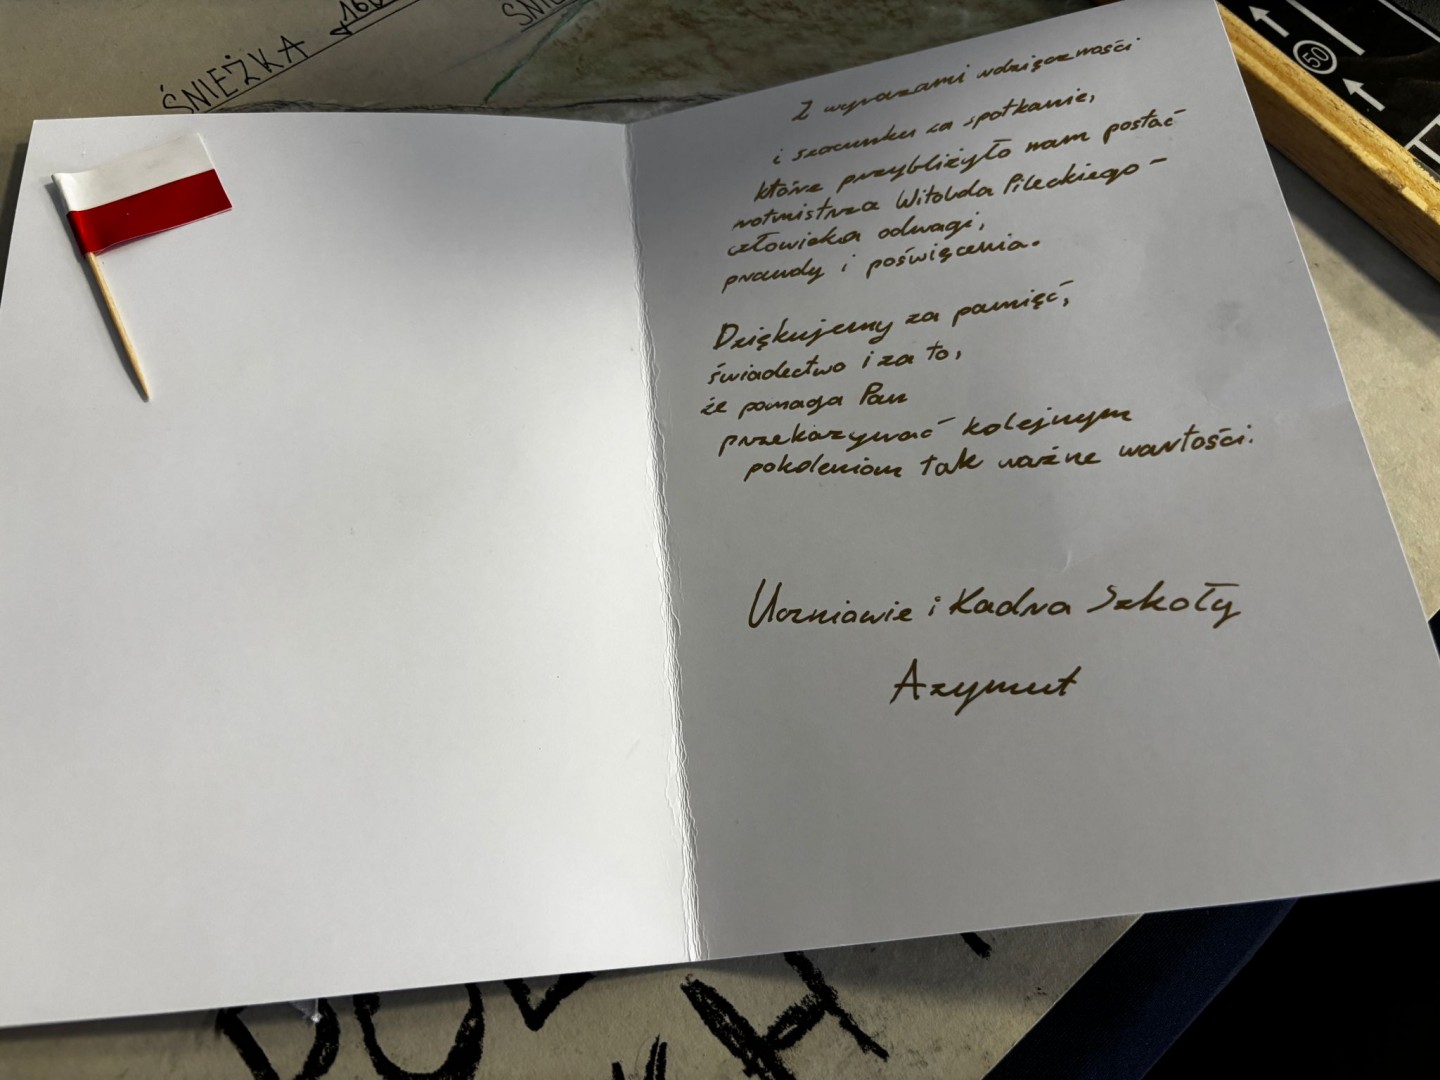 ŚNIEŻKA
Z wyrazami wdzięczności
i szacunku za spotkanie,
które przybliżyło nam postać
rotmistrza Witolda Pileckiego –
człowieka odwagi,
prawdy i poświęcenia.
Dziękujemy za pamięć,
świadectwo i za to,
że pomaga Pan
przekazywać kolejnym
pokoleniom tak ważne wartości.
Uczniowie i Kadra Szkoły
Azymut
50